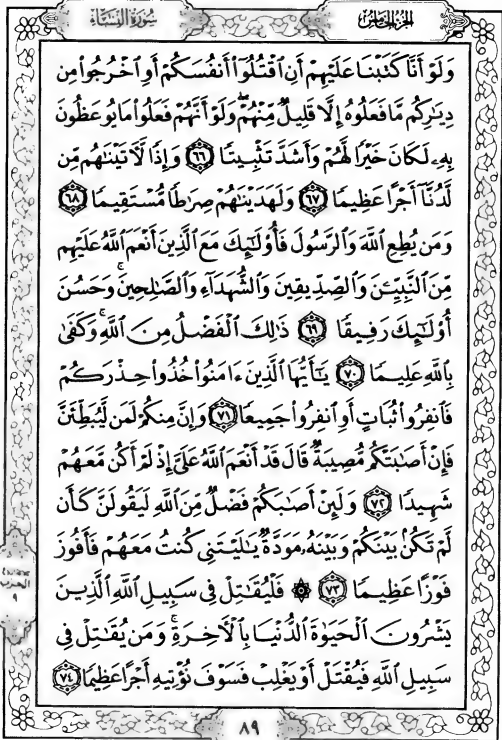 الجزء الخامس
سورة النساء
وَلَوْ أَنَّا كَتَبْنَا عَلَيْهِمْ أَنِ ٱقْتُلُوٓا۟ أَنفُسَكُمْ أَوِ ٱخْرُجُوا۟ مِن
دِيَٰرِكُم مَّا فَعَلُوهُ إِلَّا قَلِيلٌ مِّنْهُمْ ۖ وَلَوْ أَنَّهُمْ فَعَلُوا۟ مَا يُوعَظُونَ
بِهِۦ لَكَانَ خَيْرًا لَّهُمْ وَأَشَدَّ تَثْبِيتًا ٦٦ وَإِذًا لَّءَاتَيْنَٰهُم مِّن
لَّدُنَّآ أَجْرًا عَظِيمًا ٦٧ وَلَهَدَيْنَٰهُمْ صِرَٰطًا مُّسْتَقِيمًا ٦٨
وَمَن يُطِعِ ٱللَّهَ وَٱلرَّسُولَ فَأُو۟لَٰٓئِكَ مَعَ ٱلَّذِينَ أَنْعَمَ ٱللَّهُ عَلَيْهِم
مِّنَ ٱلنَّبِيِّـۧنَ وَٱلصِّدِّيقِينَ وَٱلشُّهَدَآءِ وَٱلصَّٰلِحِينَ ۚ وَحَسُنَ
أُو۟لَٰٓئِكَ رَفِيقًا ٦٩ ذَٰلِكَ ٱلْفَضْلُ مِنَ ٱللَّهِ ۚ وَكَفَىٰ
بِٱللَّهِ عَلِيمًا ٧٠ يَٰٓأَيُّهَا ٱلَّذِينَ ءَامَنُوا۟ خُذُوا۟ حِذْرَكُمْ
فَٱنفِرُوا۟ ثُبَاتٍ أَوِ ٱنفِرُوا۟ جَمِيعًا ٧١ وَإِنَّ مِنكُمْ لَمَن لَّيُبَطِّئَنَّ
فَإِنْ أَصَٰبَتْكُم مُّصِيبَةٌ قَالَ قَدْ أَنْعَمَ ٱللَّهُ عَلَىَّ إِذْ لَمْ أَكُن مَّعَهُمْ
شَهِيدًا ٧٢ وَلَئِنْ أَصَٰبَكُمْ فَضْلٌ مِّنَ ٱللَّهِ لَيَقُولَنَّ كَأَن
لَّمْ تَكُنۢ بَيْنَكُمْ وَبَيْنَهُۥ مَوَدَّةٌ يَٰلَيْتَنِى كُنتُ مَعَهُمْ فَأَفُوزَ
فَوْزًا عَظِيمًا ٧٣ ۞ فَلْيُقَٰتِلْ فِى سَبِيلِ ٱللَّهِ ٱلَّذِينَ
يَشْرُونَ ٱلْحَيَوٰةَ ٱلدُّنْيَا بِٱلْءَاخِرَةِ ۚ وَمَن يُقَٰتِلْ فِى
سَبِيلِ ٱللَّهِ فَيُقْتَلْ أَوْ يَغْلِبْ فَسَوْفَ نُؤْتِيهِ أَجْرًا عَظِيمًا ٧٤
الحزب
٩
٨٩